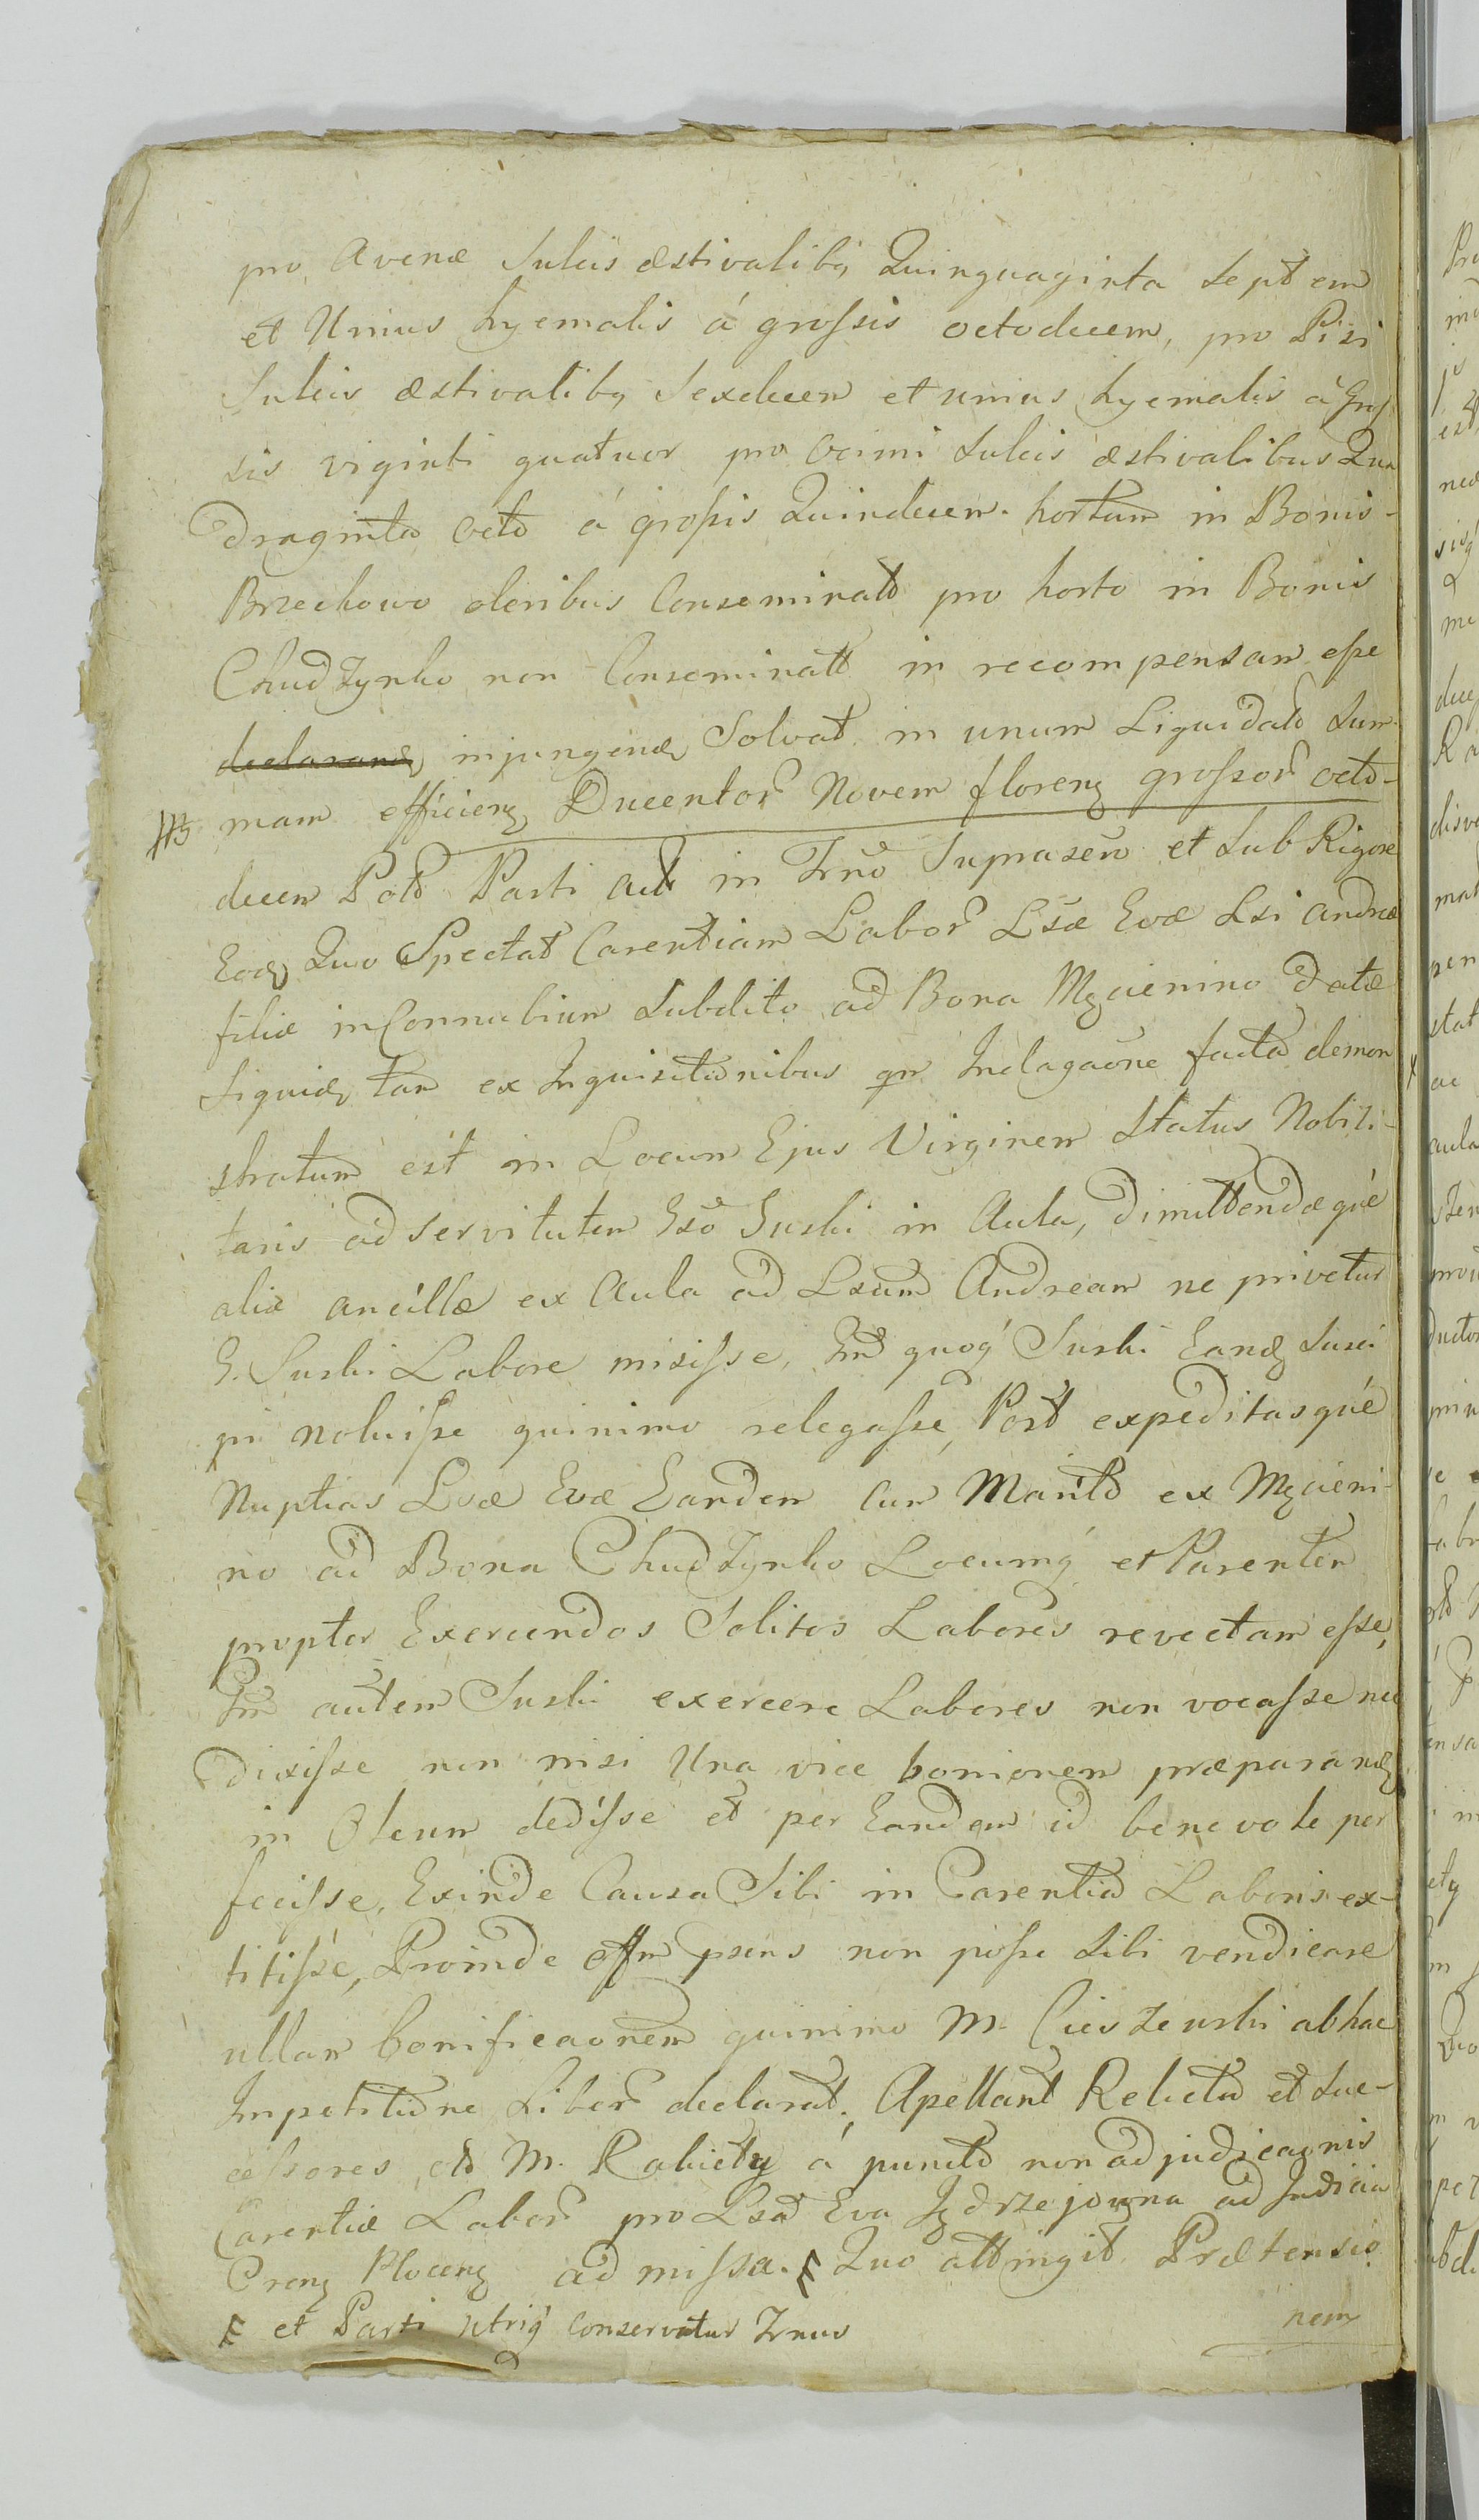 pro Avenæ Sulcis æstivalibq Quinquaginta Septem
et Unius hyemalis á grossis octodecem, pro Pisi
Sulcis æstivalibq Sexdecem et unius hyemalis á Gros
sis viginti quatuor pro Ocimi Sulcis æstivalibus Qua
draginta Octo á grossis Quindecem. hortum in Bonis
Brzechowo oleribus Conseminato pro horto in Bonis
Chudzynko non Conseminato in recompensam esse
declarand injungend Solvat in unum Liquidato Sum-
mam efficien Ducentor Novem floren grossor octo-
decem Parti Act in Trno Suprascri et Sub Rigore
Eod Quo Spectat Carentiam Labor Lsæ Evæ Lsi Andreæ
filiæ in Connubium Subdito ad Bona Mącienino datæ
Siquid tam ex Inquisitionibus qm Indagaone facta demon
stratum est in Locum Ejus Virginem Status Nobili-
taris ad servitutem Gso Suski in Aula, dimittendæqué
aliæ ancillæ ex Aula ad Lsum Andream ne privetur
G. Suski Labore misisse, Gm quoq Suski Eand Susci
pi noluisse quinimo relegasse, Post expeditasqué
Nuptias Lsæ Evæ Eandem Cum Marito ex Mącieni-
no ad Bona Chudzynko Locumq et Parentem
propter Exercendos Solitos Labores revectam esse,
Gm autem Suski exercere Labores non vocasse nec
dixisse non nisi Una vice præparand
in Oleum dedisse et per Eandem id benevole per
fecisse, Exinde Causa Sibi in Carentia Laboris ex-
titisse, Proinde psens non posse Sibi vendicare
ullam bonificaonem quinimo M. Cieszewski ab hac
Impetitione Liber declarat. Apellant Relicta et Suc-
cessores olo M. Rakiety á puncto non adjudicaonis
Carentiæ Labor pro Lsa Eva Jędrzejowna ad Judicia
Ploceng ad missa. Quo attingit Prætensio
et Parti utriq conservatur Trnus
nem